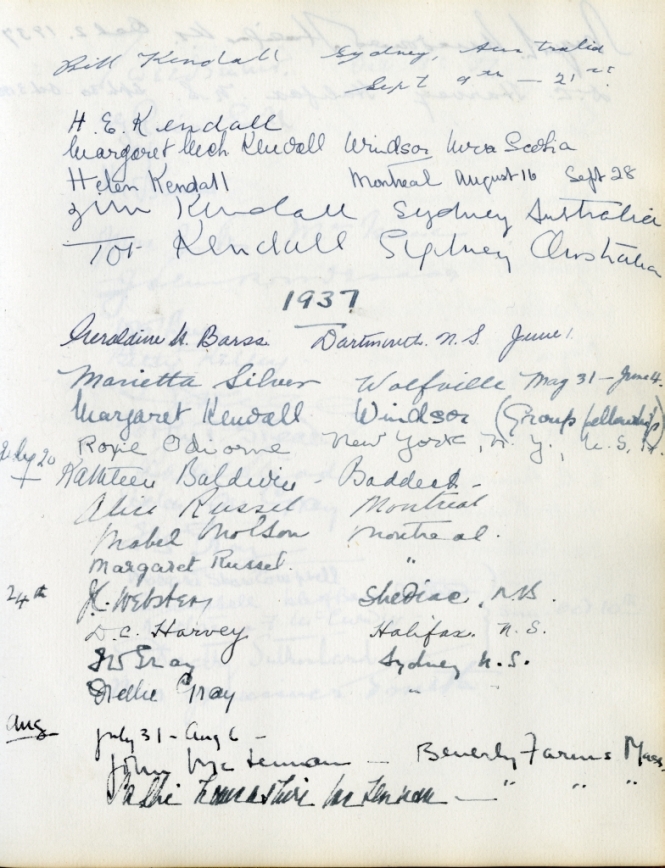 Bill Kendall Sydney, Australia
Sept 9th — 21st
H. E. Kendall
Margaret Kendall Windsor Nova Scotia
Helen Kendall Montreal August 16 Sept 28
Jim Kendall Sydney Australia
Tor Kendall Sydney Australia
1937
Geraldine M. Barss Dartmouth. N.S. June 1
Marietta Silver Wolfville May 31 – June 4.
Margaret Kendall Windsor (Group fellowship)
July 20 Roxie Odiorne New York, N.Y., U.S.A.
Kathleen Baldwin - Baddeck -
Alice Russel Montreal
Mabel Molson Montreal.
Margaret Russel. "
24th J.C. Webster, Shediac, N.B.
D.C. Harvey. Halifax. N.S.
Gray Sydney N.S.
Gray " "
Aug July 31 - Aug 6 -
John McLennan — Beverly Farms Mass.
McLennan — " " "